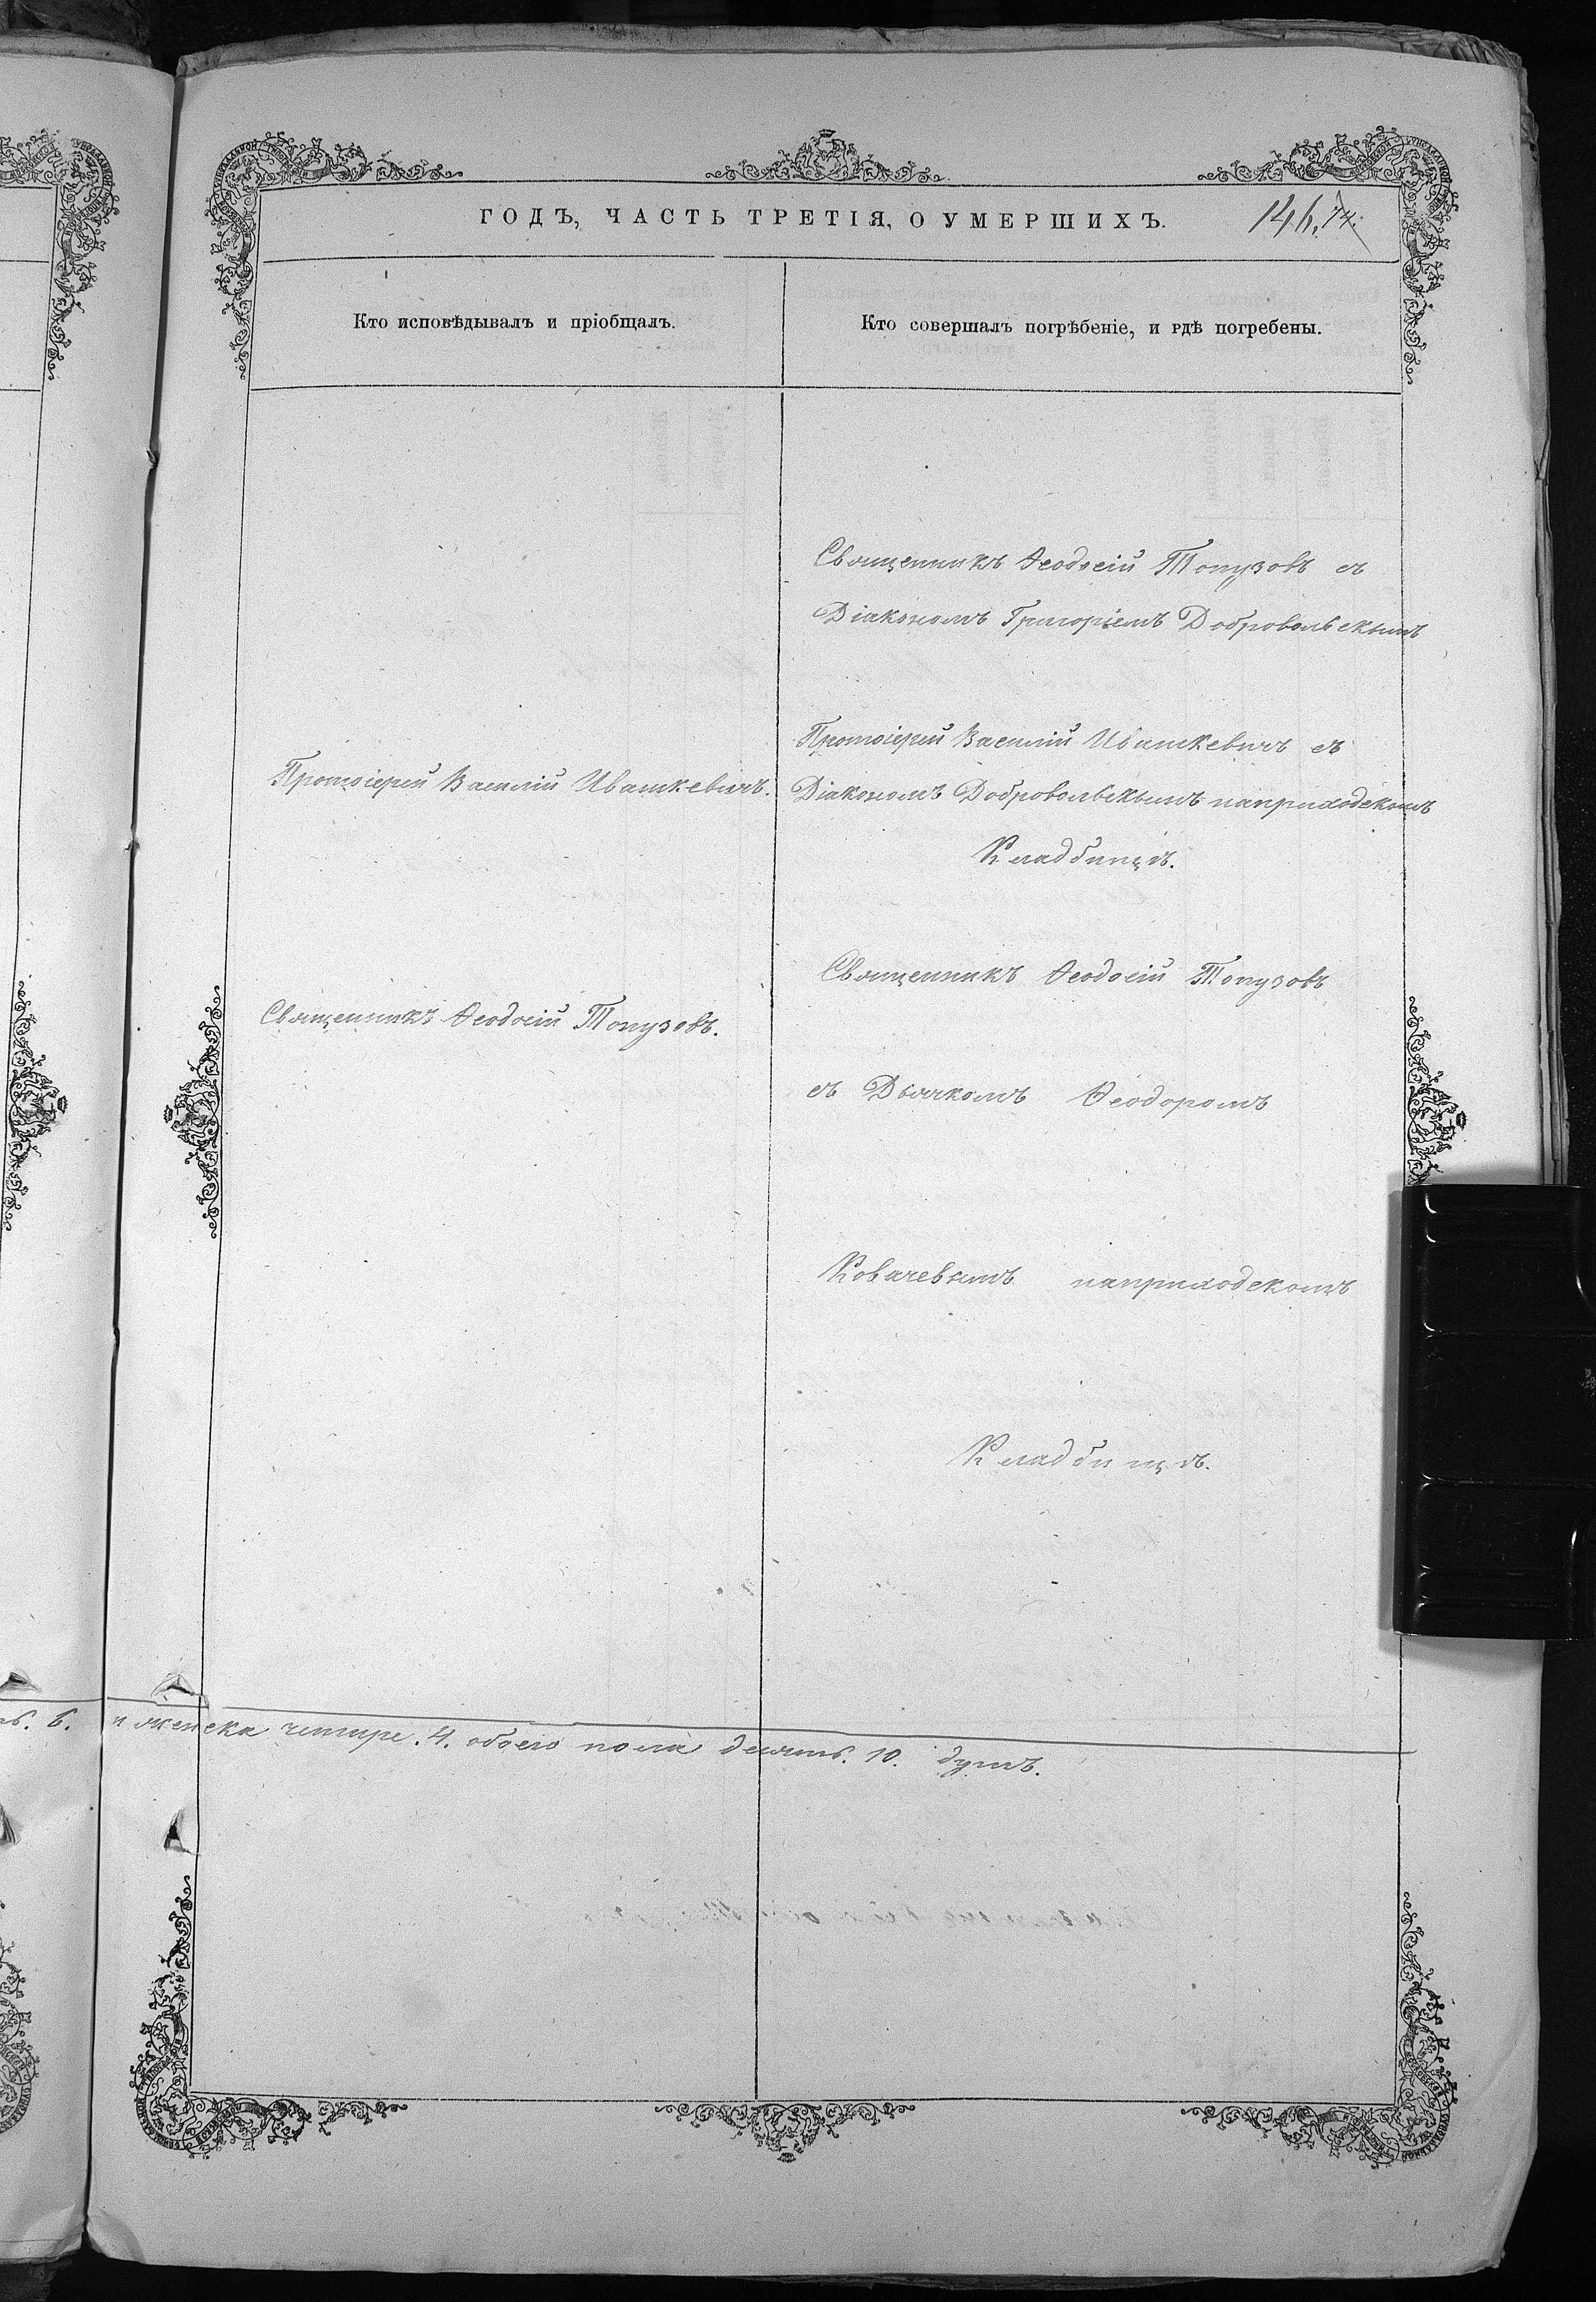 ГОДЪ, ЧАСТЬ ТРЕТІЯ, О УМЕРШИХЪ.
146. 74.
Кто исповѣдывалъ и пріобщалъ.
Кто совершалъ погрѣбеніе, и гдѣ погребены.
Священникъ Ѳеодосій Топузовъ съ
Діакономъ Григоріемъ Добровольскимъ
Протоіерей Василій Ивашкевичъ.
Протоіерей Василій Ивашкевичъ съ
Діакономъ Добровольскимъ наприходскомъ
Кладбищѣ.
Священникъ Ѳеодосій Топузовъ.
Священникъ Ѳеодосій Топузовъ
съ Дьячкомъ Ѳеодоромъ
Ковачевымъ наприходскомъ
Кладбищѣ.
6. и женска четыре. 4. обоего пола десять. 10. душъ.